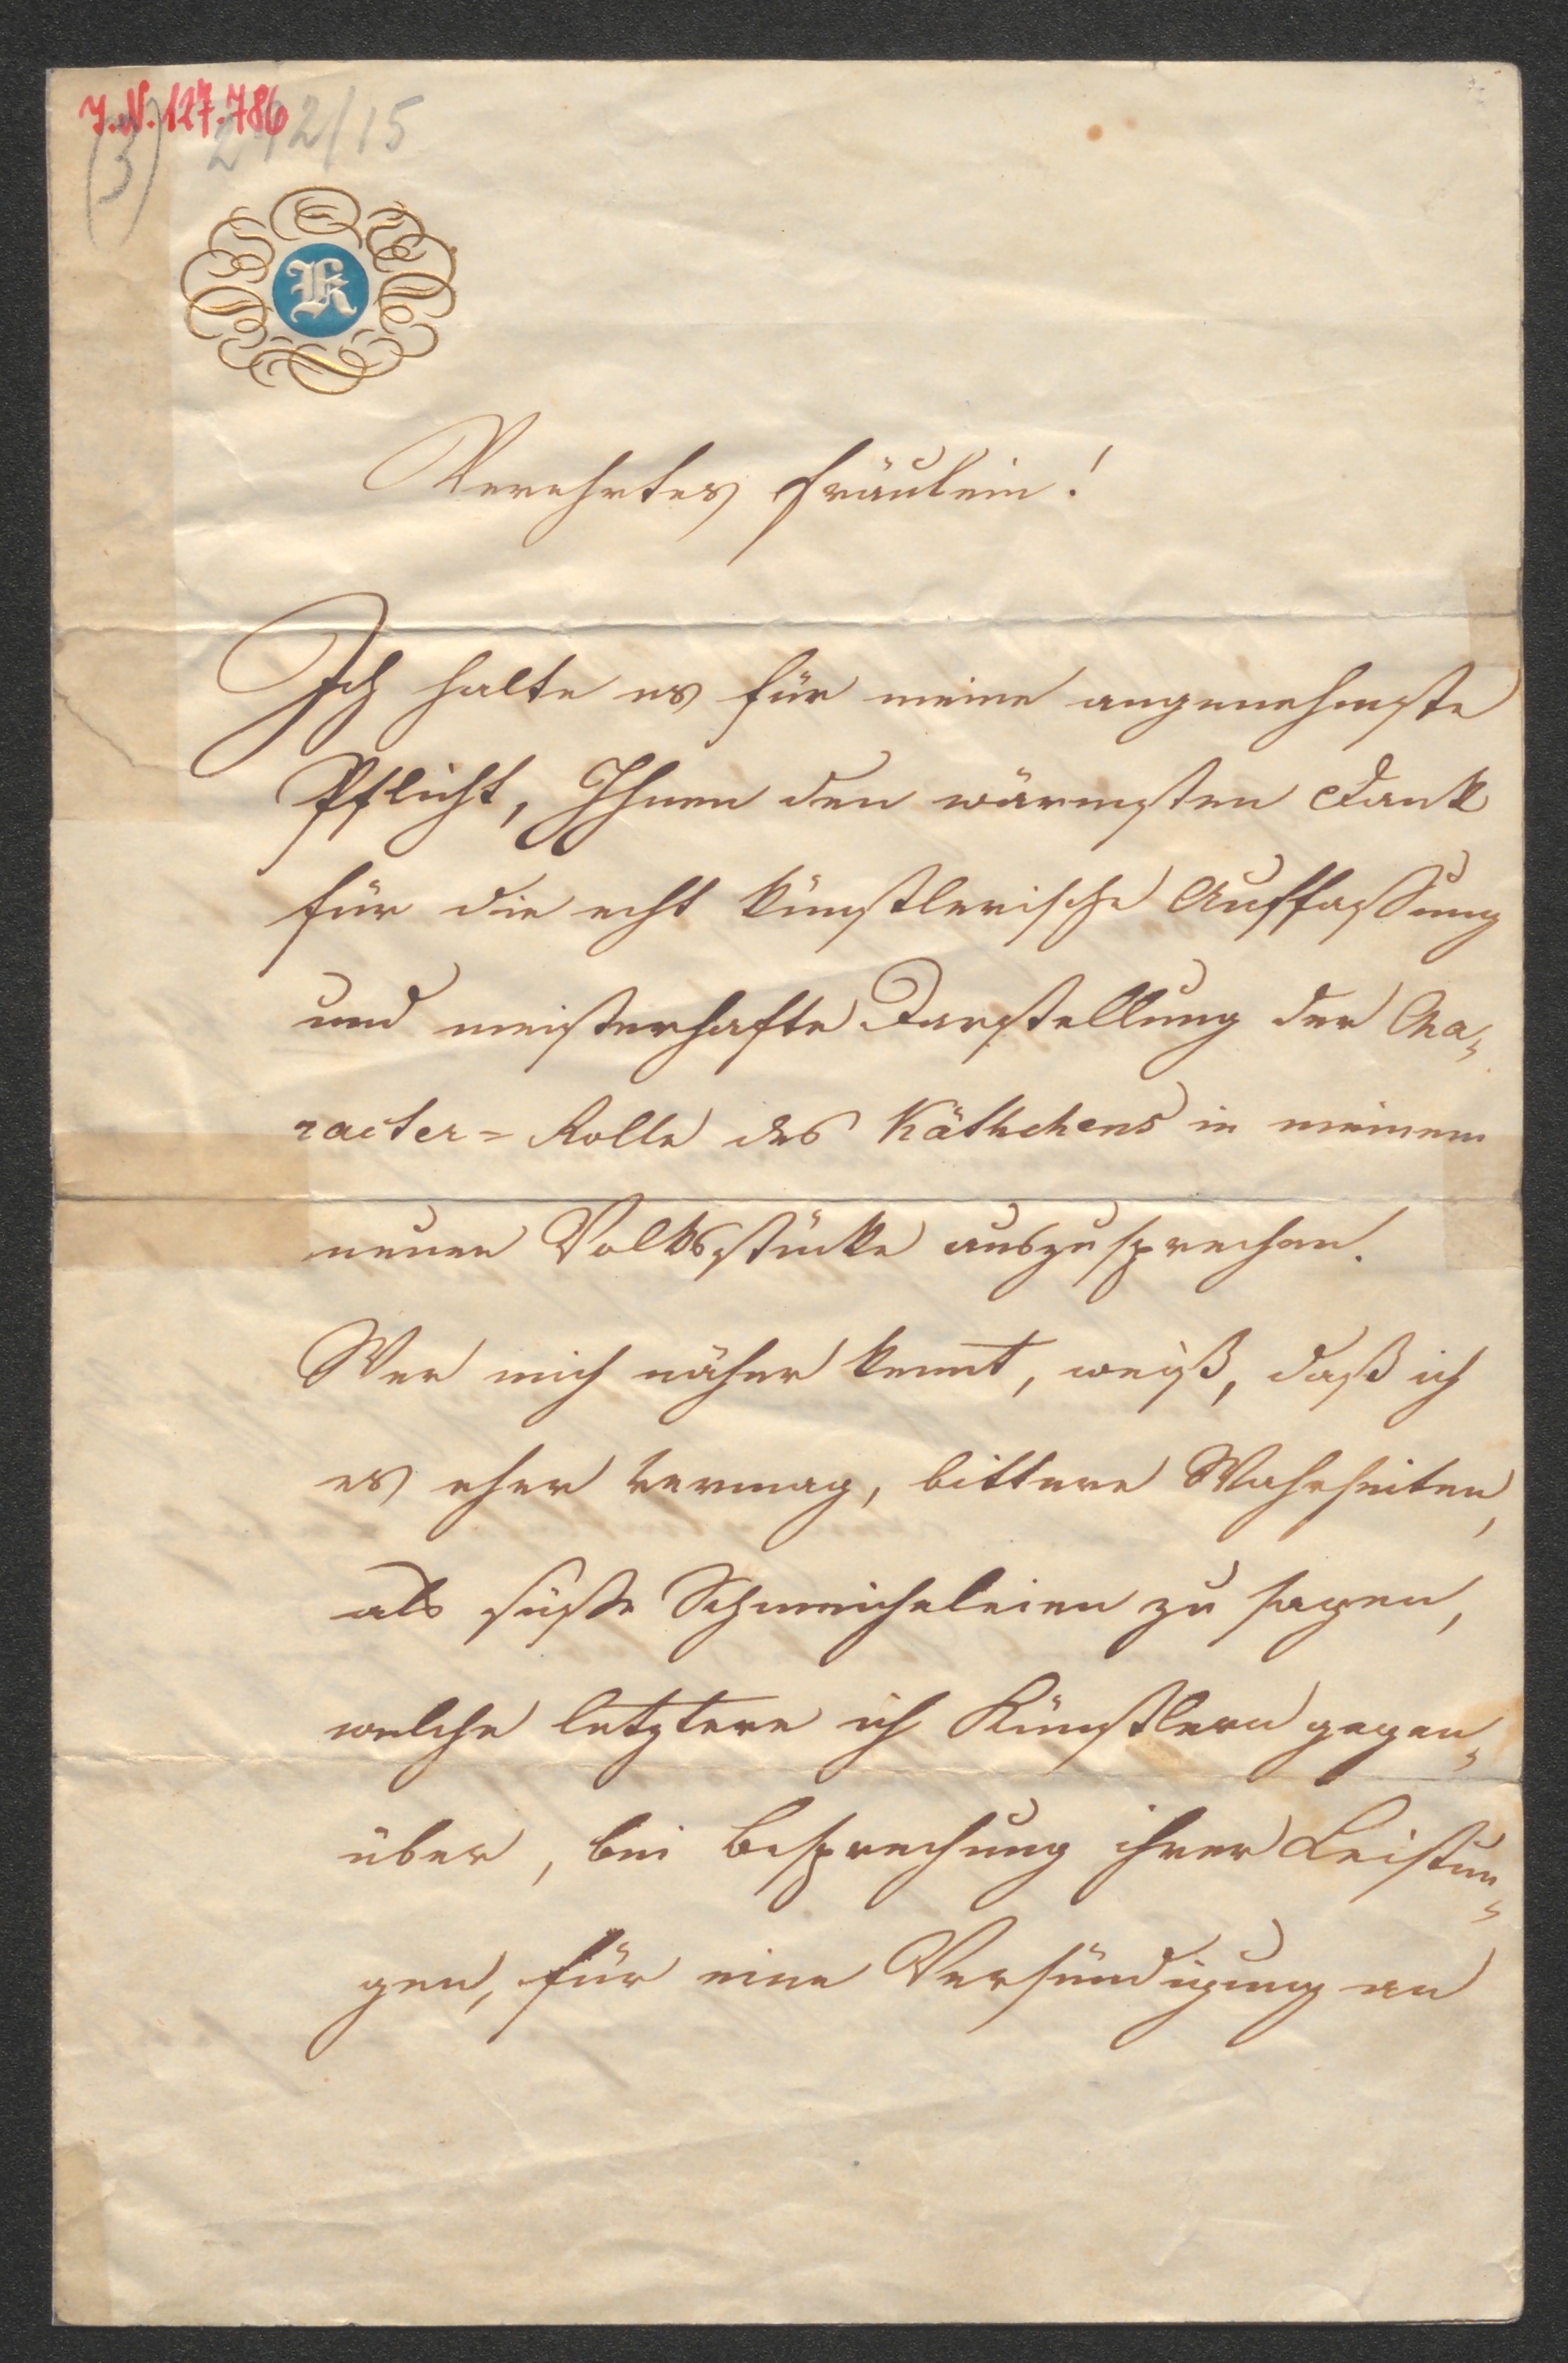 J.N. 127.786
(3) 242/15
K
Verehrtes Fräulein!
Ich halte es für meine angenehmste
Pflicht, Ihnen den wärmsten Dank
für die echt künstlerische Auffassung
und meisterhafte Darstellung der Cha-
racter=Rolle des Käthchens in meinem
neuen Volksstücke auszusprechen.
Wer mich näher kennt, weiß, daß ich
es eher vermag, bittere Wahrheiten,
als süße Schmeicheleien zu sagen,
welche letztere ich Künstlern gegen-
über, bei Besprechung ihrer Leistun-
gen, für eine Versündigung an